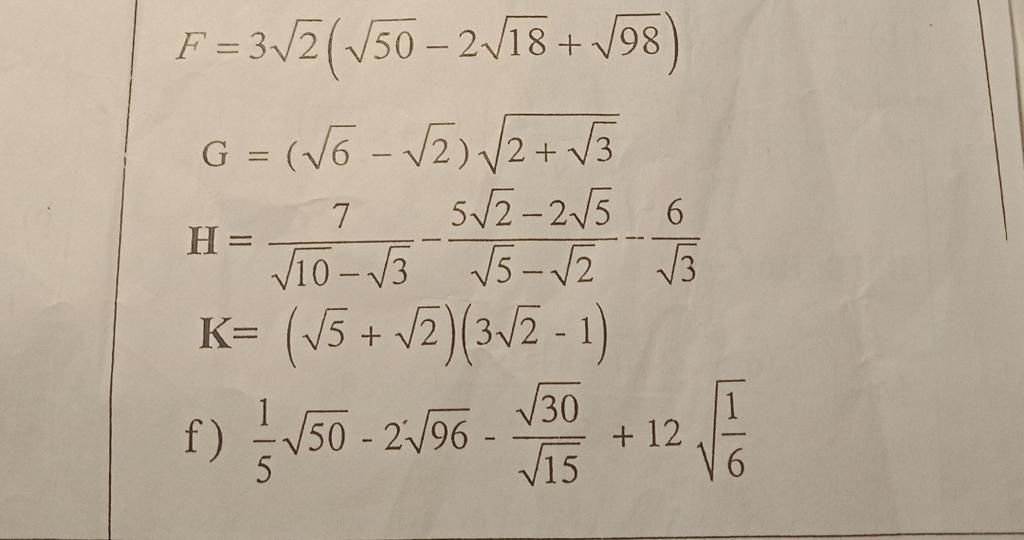 F = 3√2(√50 − 2√18 + √98)
G = (√6 − √2)√(2 + √3)
H = 7/(√10 − √3) − (5√2 − 2√5)/(√5 − √2) − 6/√3
K= (√5 + √2)(3√2 - 1)
f) 1/5 √50 - 2√96 - √30/√15 + 12 √(1/6)